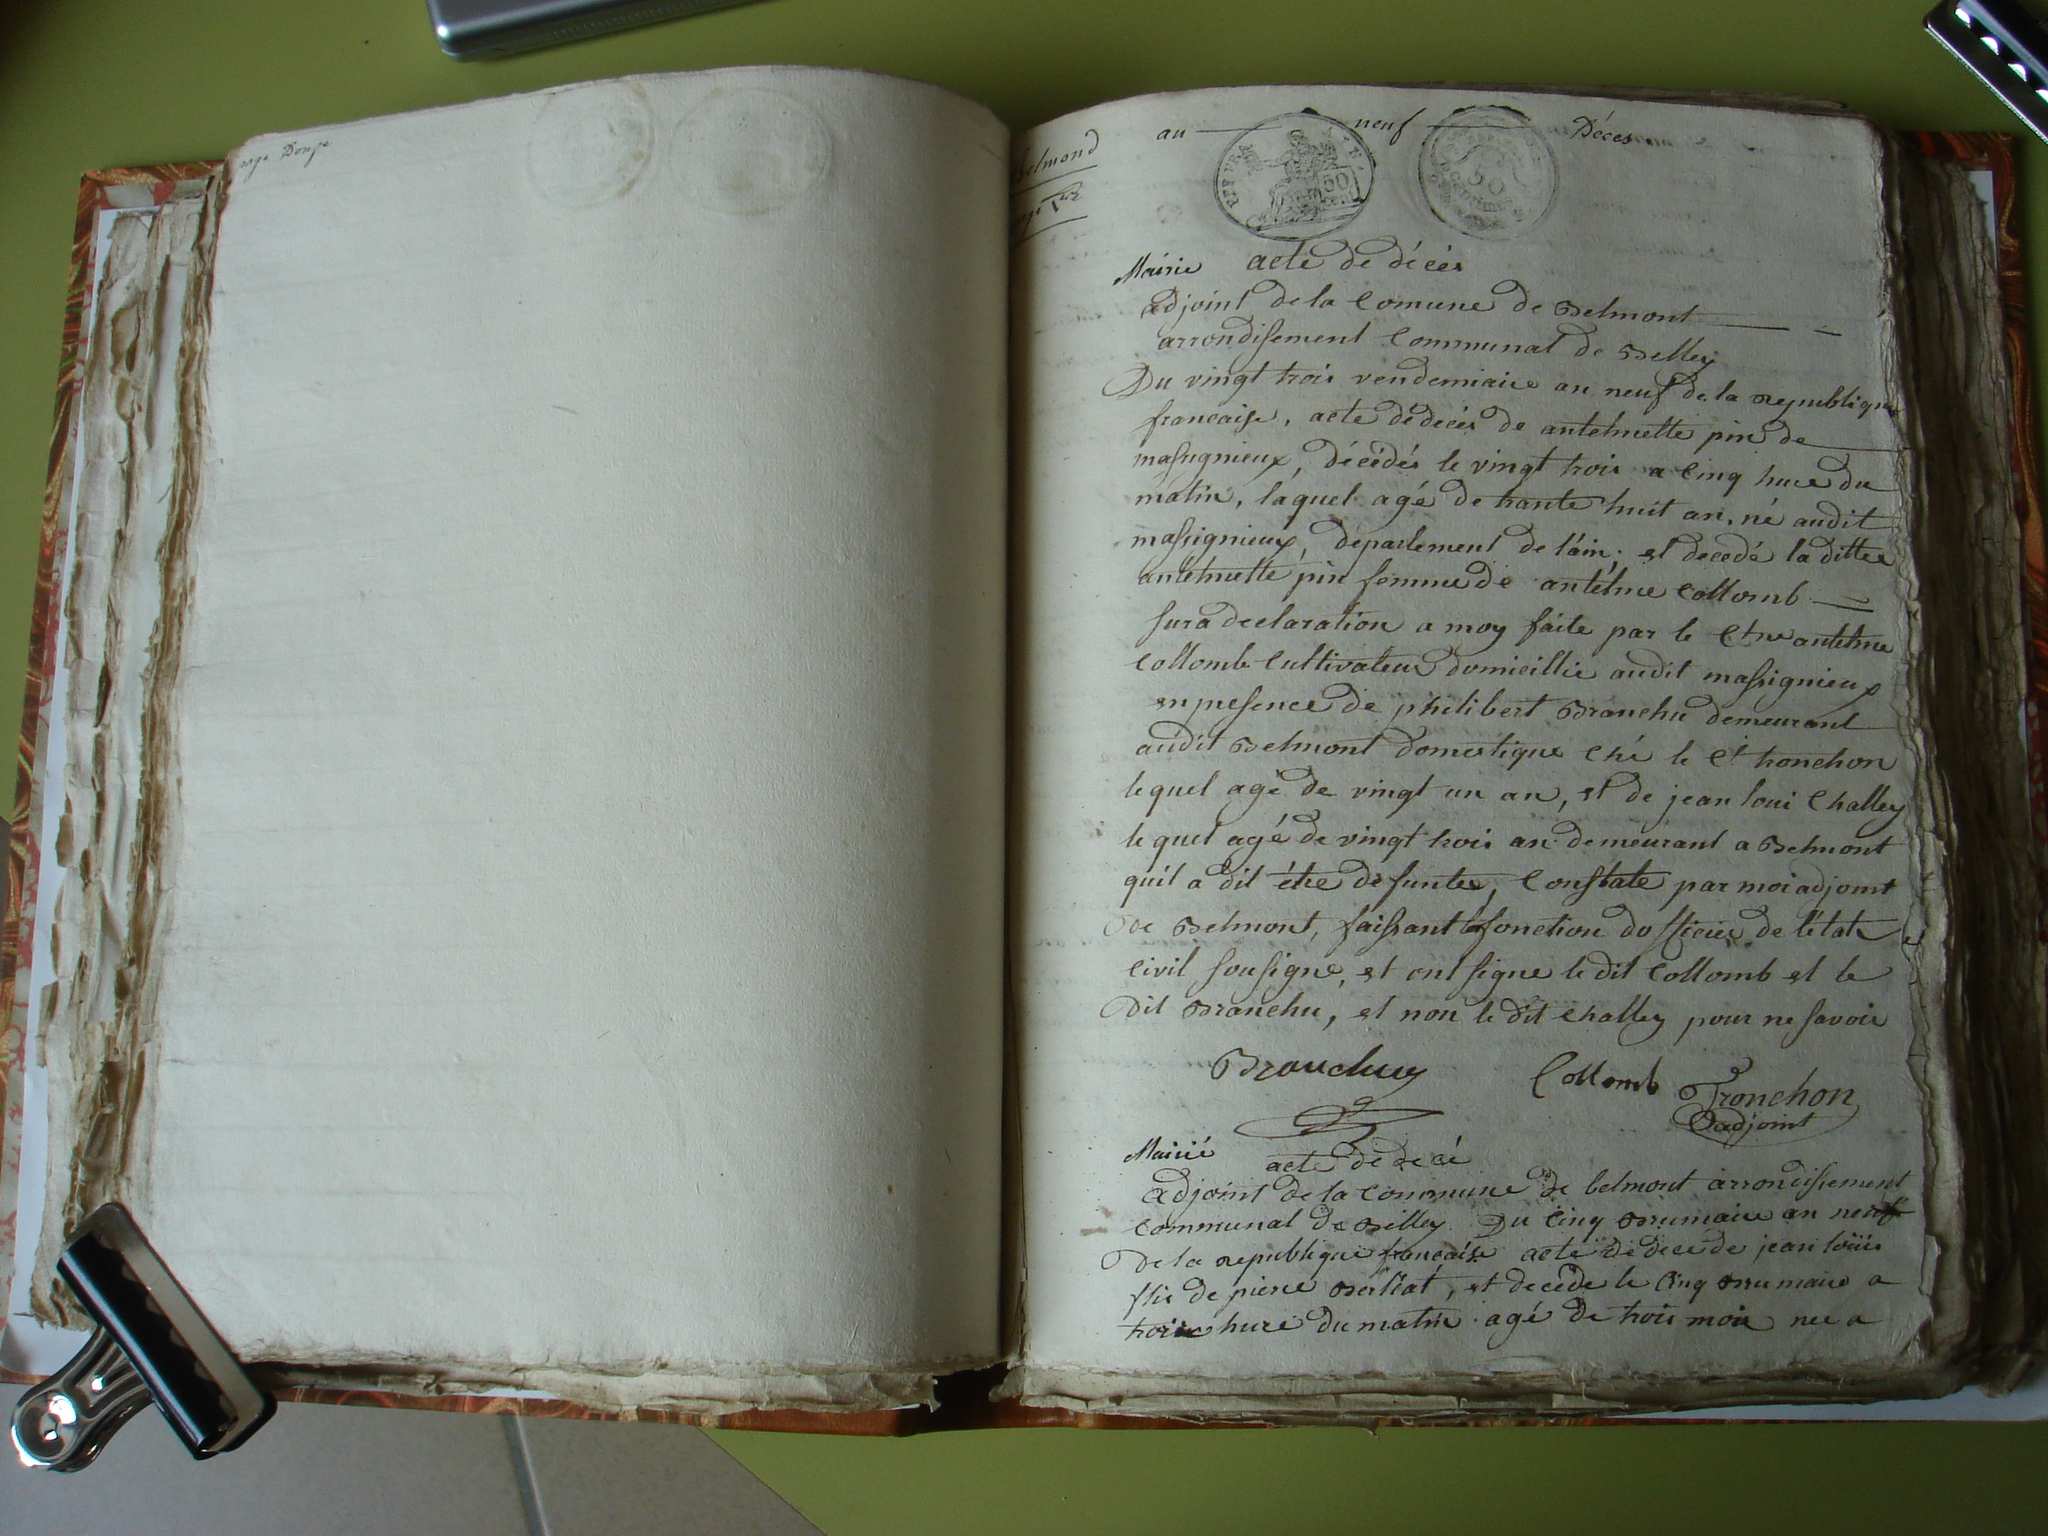 page Douze
Belmond
page 1re
an neuf Décès
REP. FRA.
50
50
Centimes
Mairie acte de décès
adjoint de la Comune de Belmont
arrondissement Communal de Belley
Du vingt trois vendemiaire an neuf de la republique
francaise, acte dédecés de antelmette pin de
massignieux, décédés le vingt trois a Cinq hure du
matin, láquel agé de trante huit an, né audit
massignieux, departement de láin; et decedé la ditte
antelmette pin femme de antelme Collomb
sur a declaration a moy faite par le Cten antelme
Collomb Cultivateur domicillie audit massignieux
en presence de philibert Branchu demeurant
audit Belmont domestique Ché le Ct tronchon
le quel agé de vingt un an, et de jean loui Challey
le quel agé de vingt trois an demeurant a Belmont
quil a dit étre défunte, Constate par moi adjoint
de Belmont, faissant la fonction dofficier de létat
Civil sousigne, et ont signe le dit Collomb et le
Dit Branchu, et non le dit Challey pour ne savoir
Branchuy Collomb Tronchon
adjoint
Mairié acte de decé
adjoint de la Commune de belmont arrondissement
Communal de Billey Du Cinq Brumaire an neuf
De la republique francaise acte de dece de jean loüis
flis de pierre Berliat, et decede le Cinq Brumaire a
trois hure du matin agé de trois mois nee a